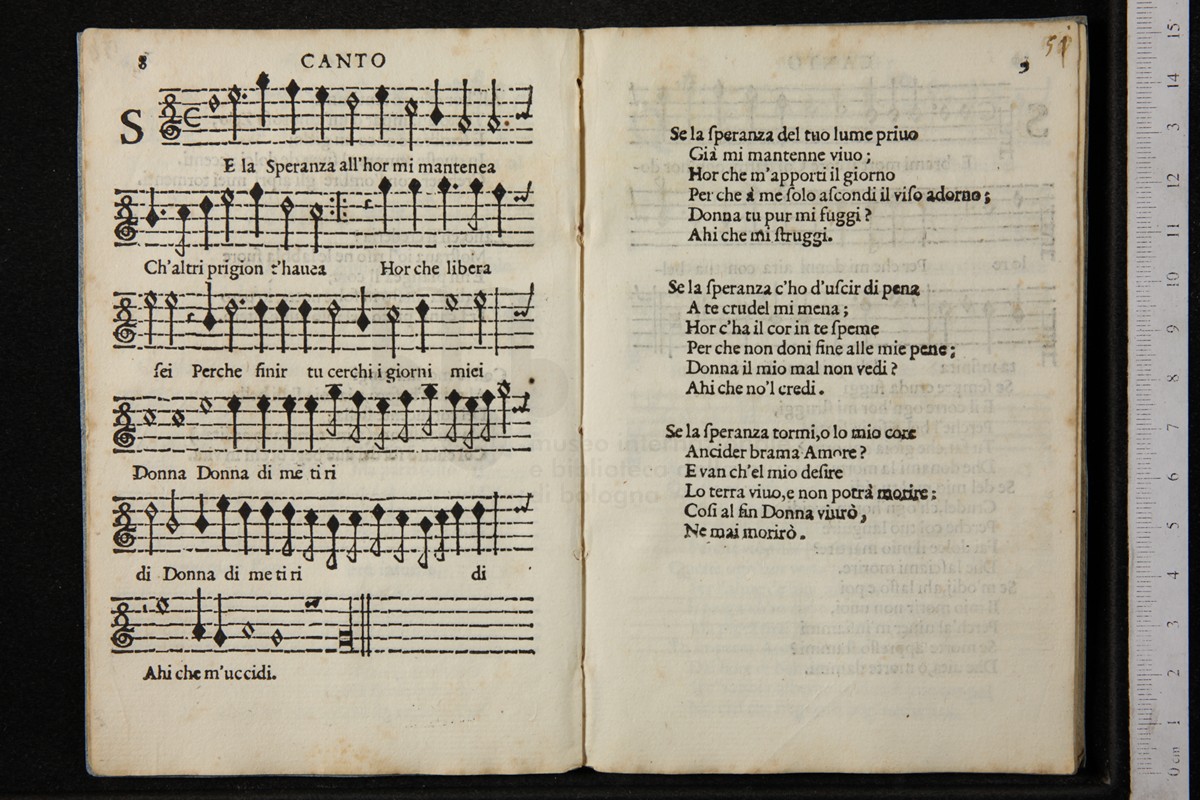 8
CANTO
S
E la Speranza all'hor mi mantenea
Ch'altri prigion t'hauea Hor che libera
ſei Perche finir tu cerchi i giorni miei
Donna Donna di me ti ri
di Donna di me ti ri di
Ahi che m'uccidi.
9
Se la ſperanza del tuo lume priuo
Già mi mantenne viuo;
Hor che m'apporti il giorno
Per che à me ſolo aſcondi il viſo adorno;
Donna tu pur mi fuggi?
Ahi che mi ſtruggi.
Se la ſperanza c'ho d'uſcir di pena
A te crudel mi mena;
Hor c'ha il cor in te ſpeme
Per che non doni fine alle mie pene;
Donna il mio mal non vedi?
Ahi che no'l credi.
Se la ſperanza tormi, o lo mio core
Ancider brama Amore?
E van ch'el mio deſire
Lo terra viuo, e non potrà morire;
Coſi al fin Donna viurò,
Ne mai morirò.
museo inter
e biblioteca d
di bologna
15
14
13
12
11
10
9
8
7
6
5
4
3
2
1
0 cm